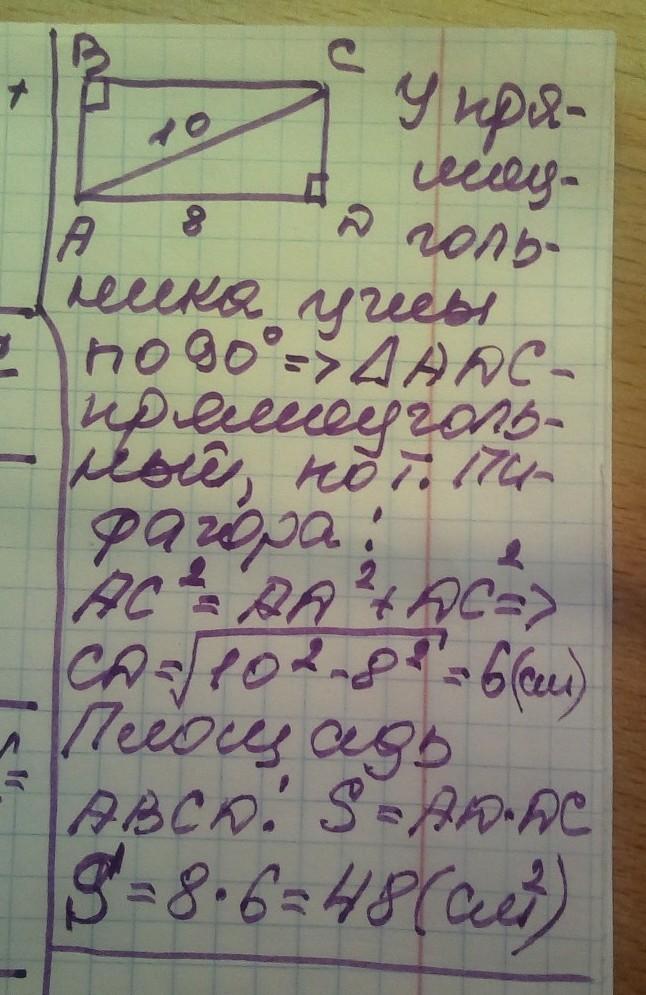 B C
10
A 8 D
У пря-
моуг-
голь-
ника углы
по 90° => ΔADC -
прямоуголь-
ный, по т. Пи-
фагора:
AC² = DA² + DC² =>
CD = √10² - 8² = 6 (см)
Площадь
ABCD: S = AD · DC
S = 8 · 6 = 48 (см²)